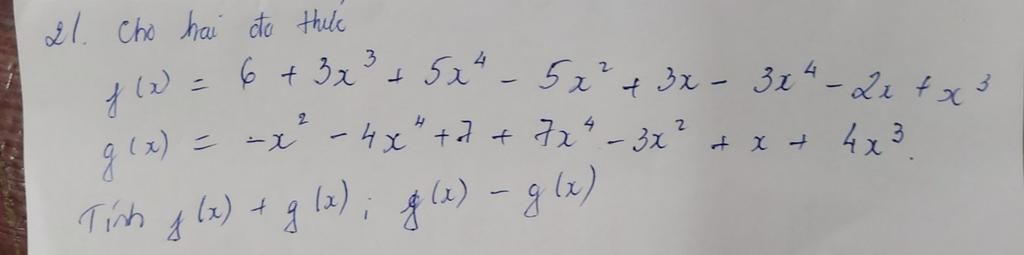 21. Cho hai đa thức
f(x) = 6 + 3x³ + 5x⁴ - 5x² + 3x - 3x⁴ - 2x + x³
g(x) = -x² - 4x⁴ + 7 + 7x⁴ - 3x² + x + 4x³.
Tính f(x) + g(x) ; f(x) - g(x)